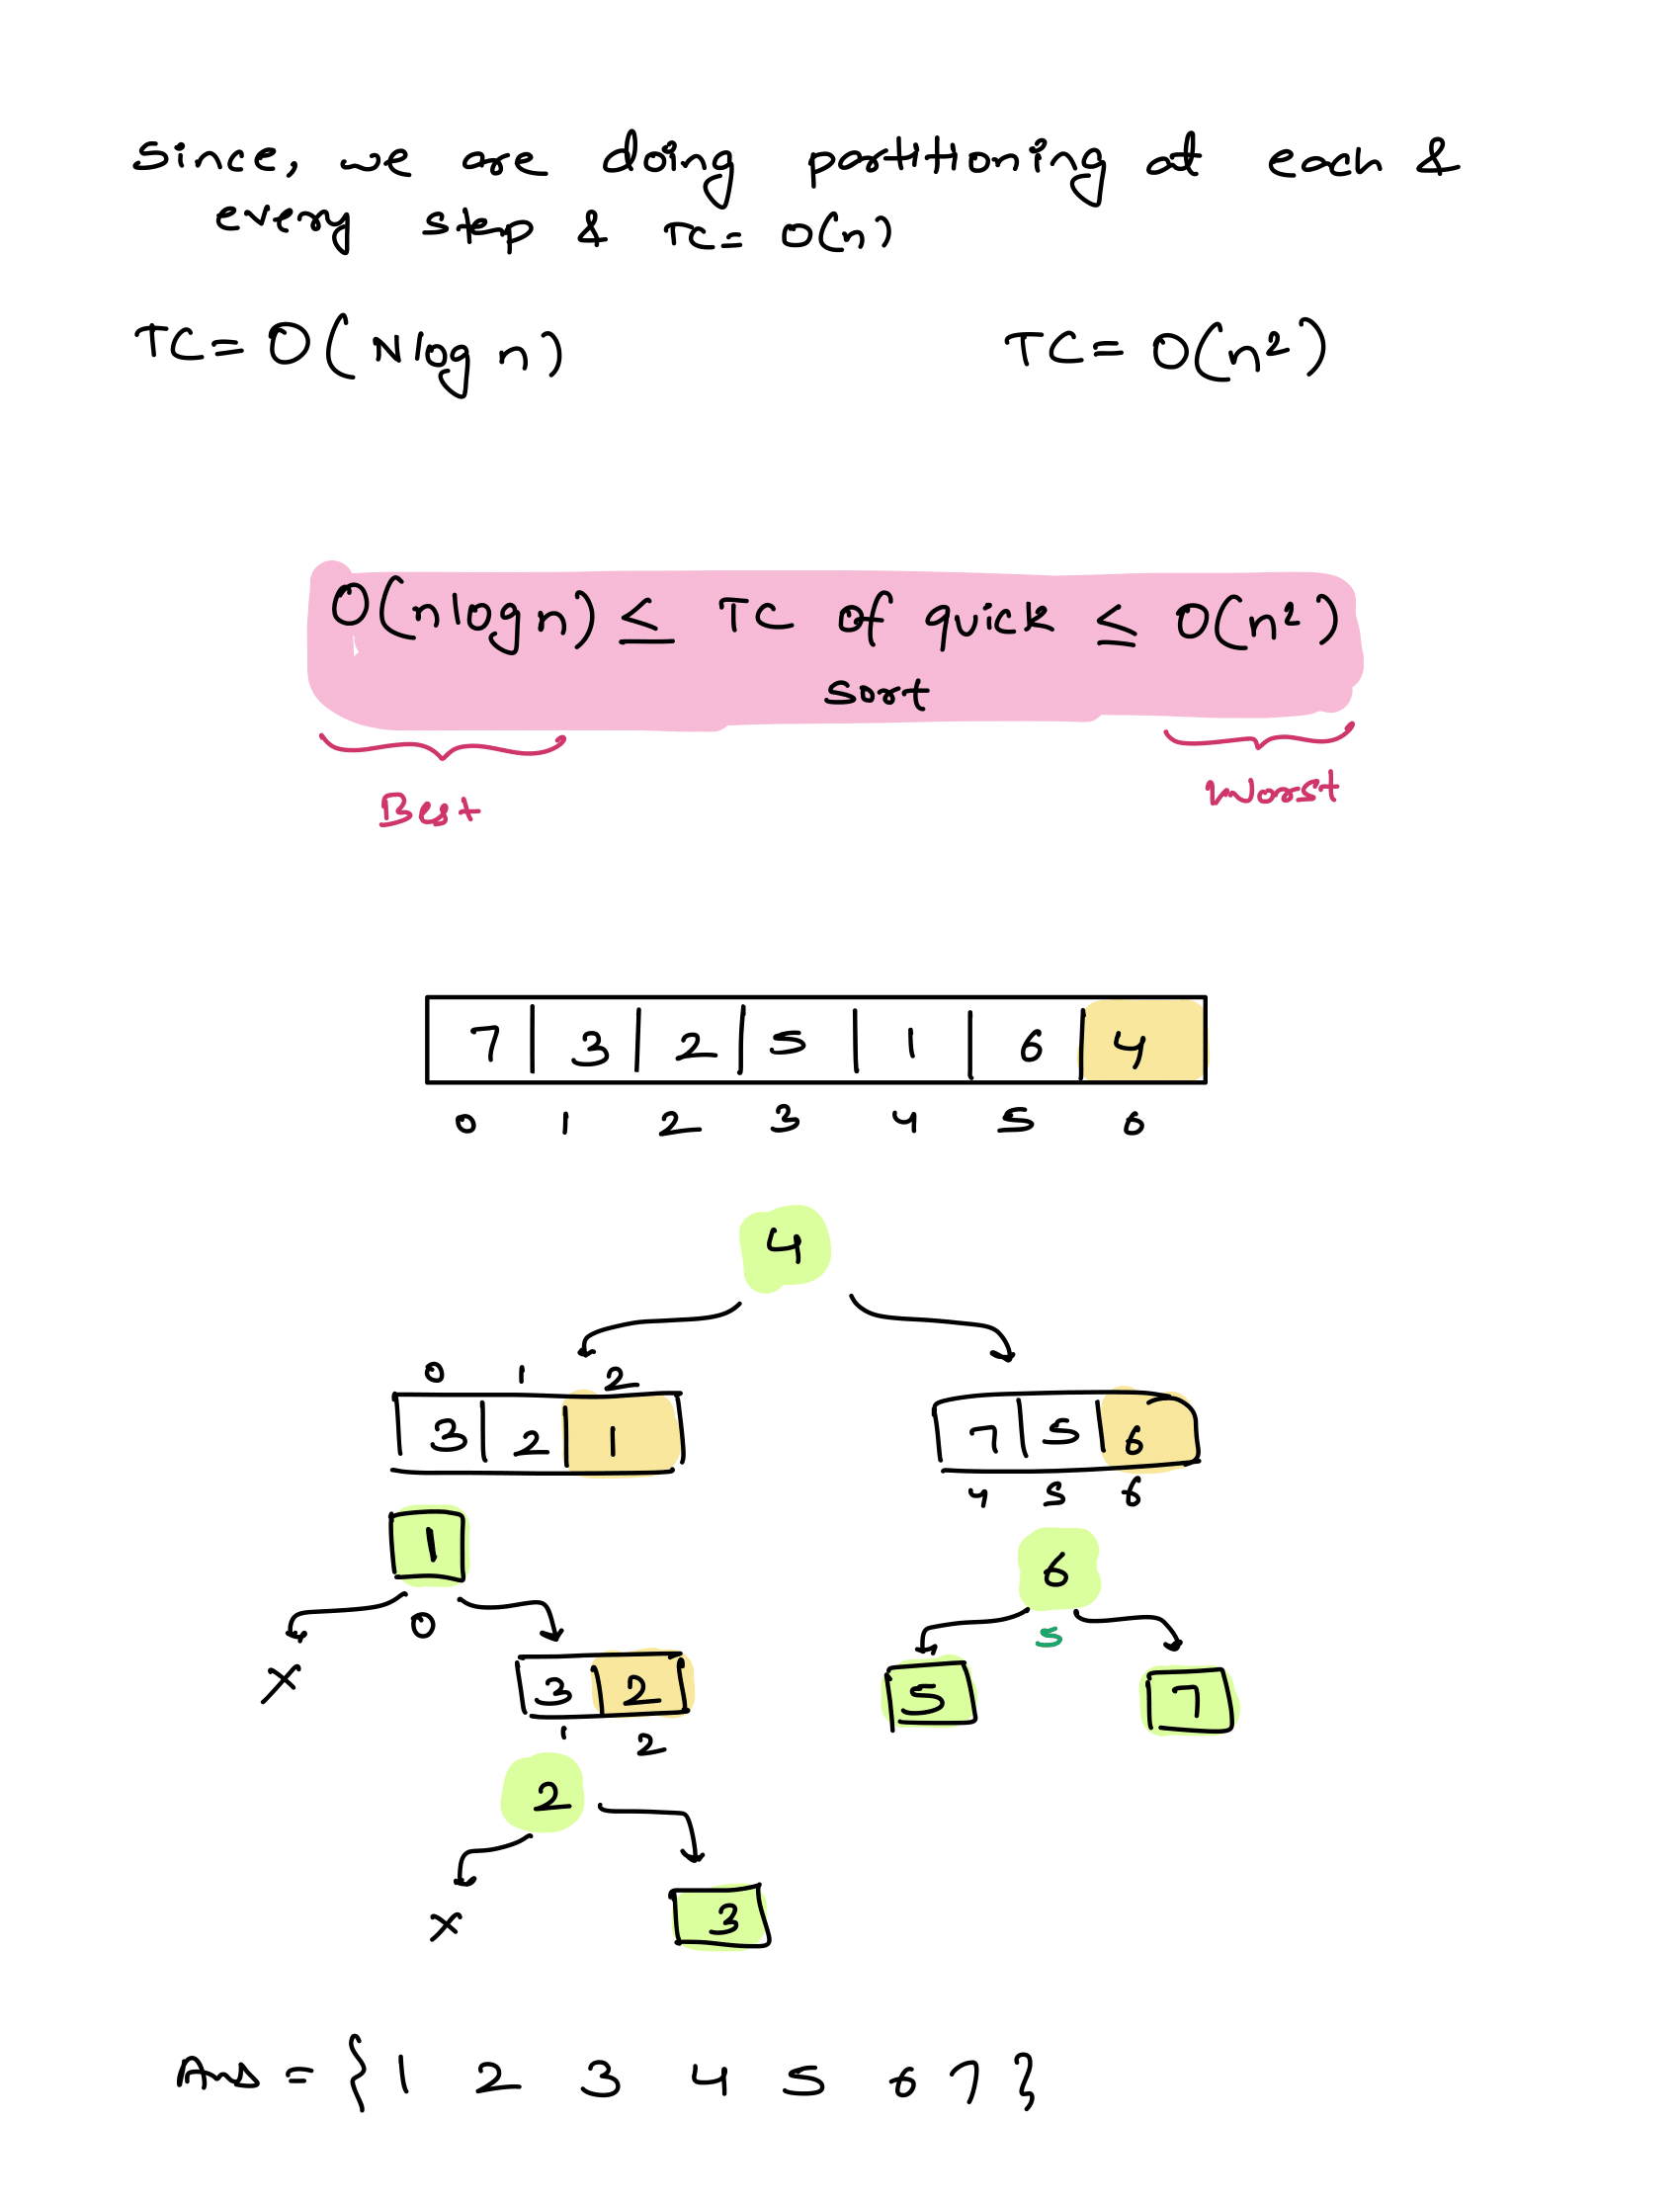 since, we are doing partitioning at each &
every step & TC = O(n)
TC = O(N log n) TC = O(n²)
O(n log n) ≤ TC of quick ≤ O(n²)
sort
Best Worst
7 3 2 5 1 6 4
0 1 2 3 4 5 6
4
0 1 2
3 2 1 7 5 6
4 5 6
1 6
0 5
X 3 2 5 7
1 2
2
X 3
Ans = {1 2 3 4 5 6 7}